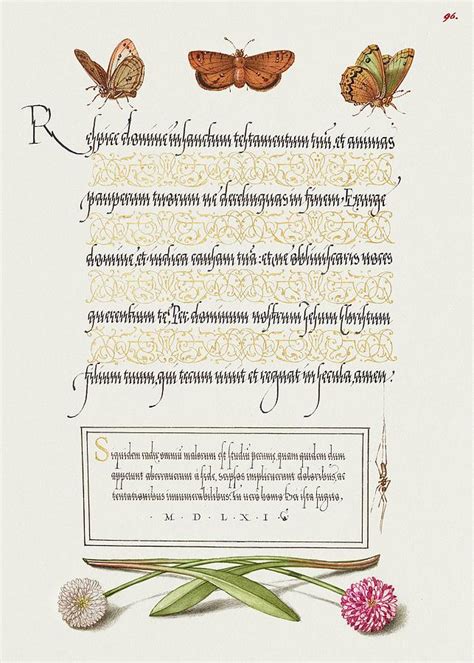 96.
Respice domine in sanctum testamentum tuū, et animas
pauperum tuorum ne derelinquas in finem. Exurge
domine, et iudica causam tuā: et ne obliuiscaris uoces
querentium te. Per dominum nostrum Jesum Christum
filium tuum, qui tecum uiuit et regnat in secula, amen.
Siquidem radix omniū malorum est studiū pecunię, quam quidam dum
appetunt aberrauerunt a fide, seipsos implicuerunt doloribus, ac
tentationibus innumerabilibus. Tu uero homo Dei ista fugito.
M D L X I